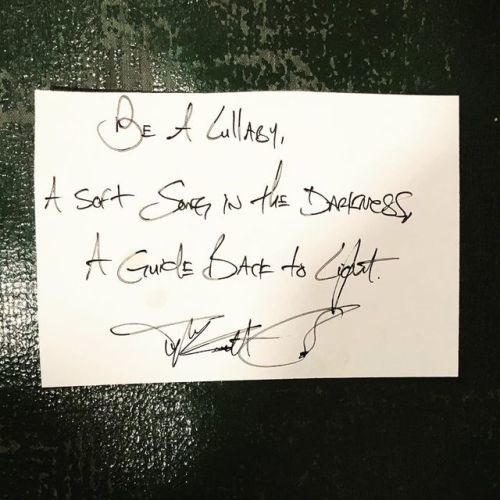 Be A Lullaby,
A Soft Song in the Darkness,
A Guide Back to Light.